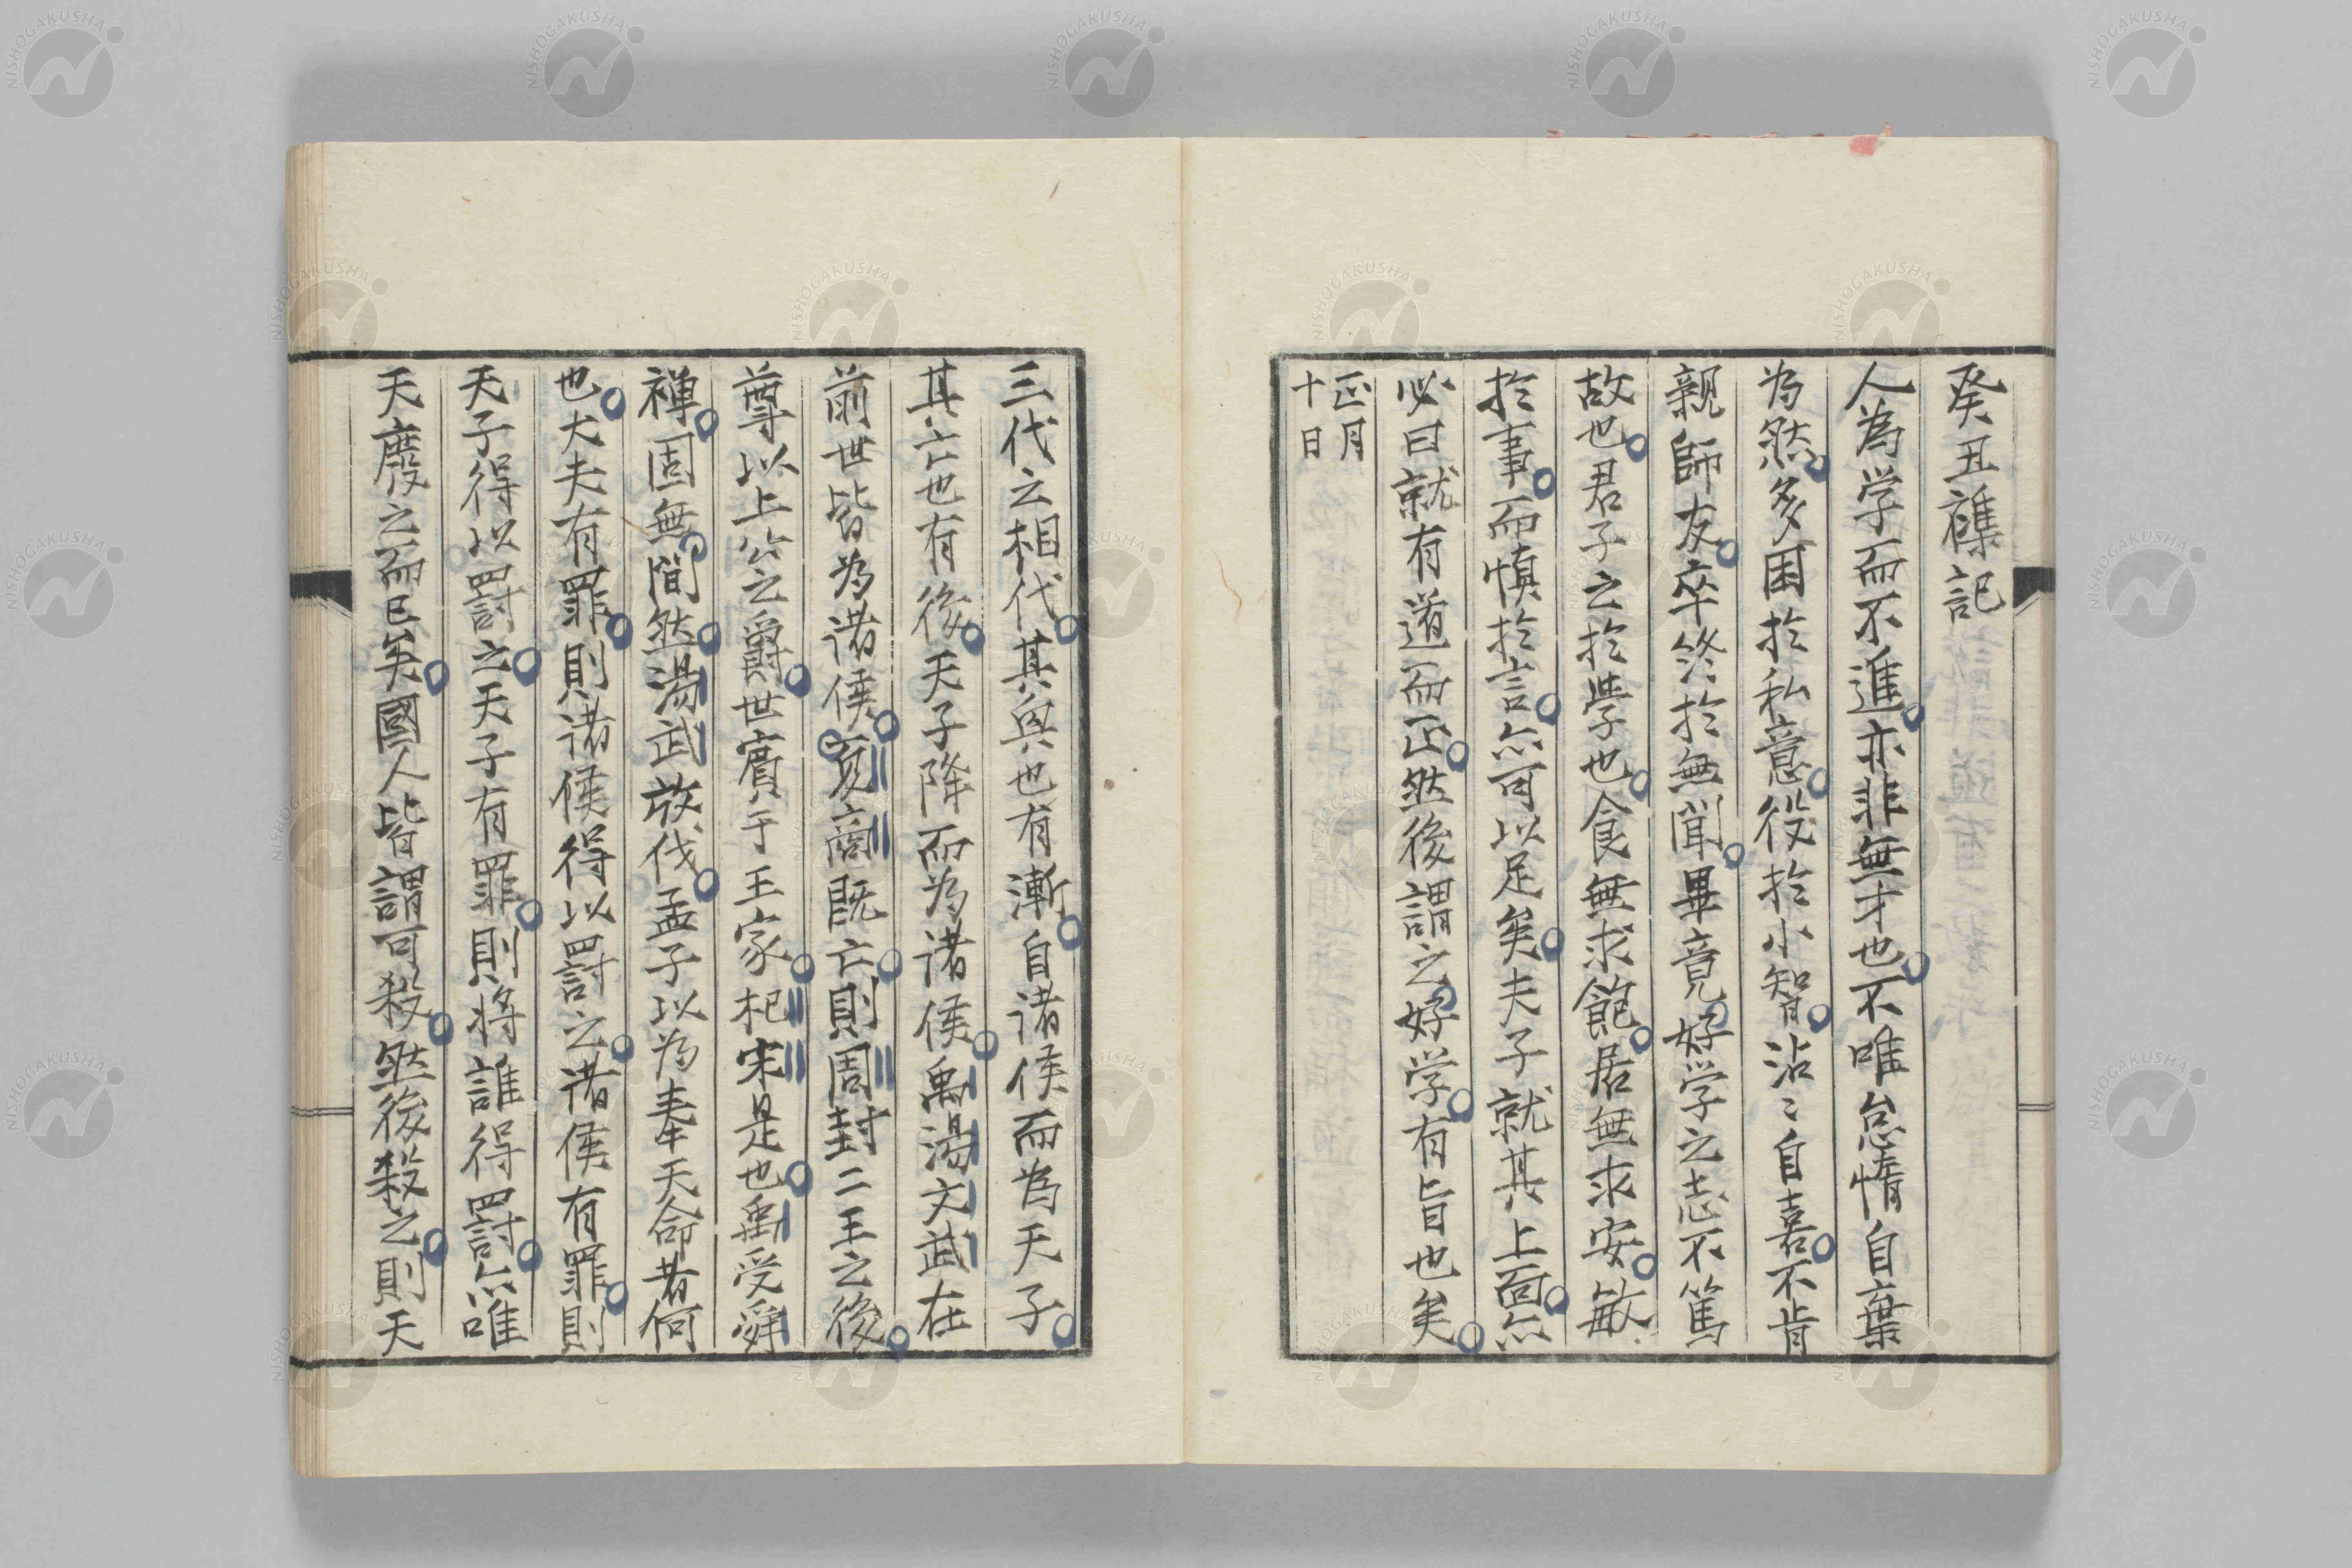 癸丑襍記
人為学而不進亦非無才也不唯怠惰自棄
為然多困於私意役於小智沾〻自喜不肯
親師友卒終於無聞畢竟好学之志不篤
故也君子之於學也食無求飽居無求安敏
於事而慎於言亦可以足矣夫子就其上面亦
必曰就有道而正然後謂之好学有旨也矣
正月
十日
三代之相代其興也有漸自諸侯而為天子
其亡也有後天子降而為諸侯禹湯文武在
前世皆為諸侯夏商既亡則周封二王之後
尊以上公之爵世賓于王家杞宋是也禹受舜
禅固無間然湯武放伐孟子以為奉天命者何
也大夫有罪則諸侯得以罸之諸侯有罪則
天子得以罸之天子有罪則将誰得罸亦唯
天廢之而已矣國人皆謂可殺然後殺之則天
NISHOGAKUSHA